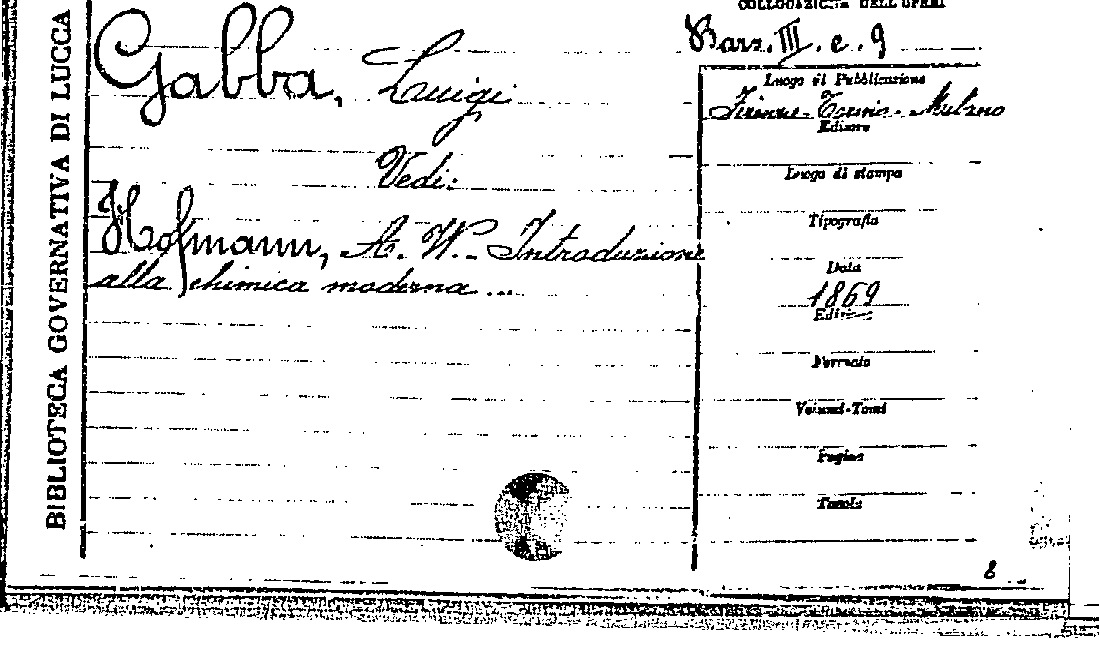 BIBLIOTECA GOVERNATIVA DI LUCCA
COLLOCAZIONE DELL'OPERA
Gabba, Luigi
Bars. III. c. 9
Vedi:
Hofmann, A. W. - Introduzione
alla chimica moderna ...
Luogo di Pubblicazione
Firenze - Torino - Milano
Editore
Luogo di stampa
Tipografia
Data
1869
Edizione
Formato
Volumi-Tomi
Pagine
Tavole
8